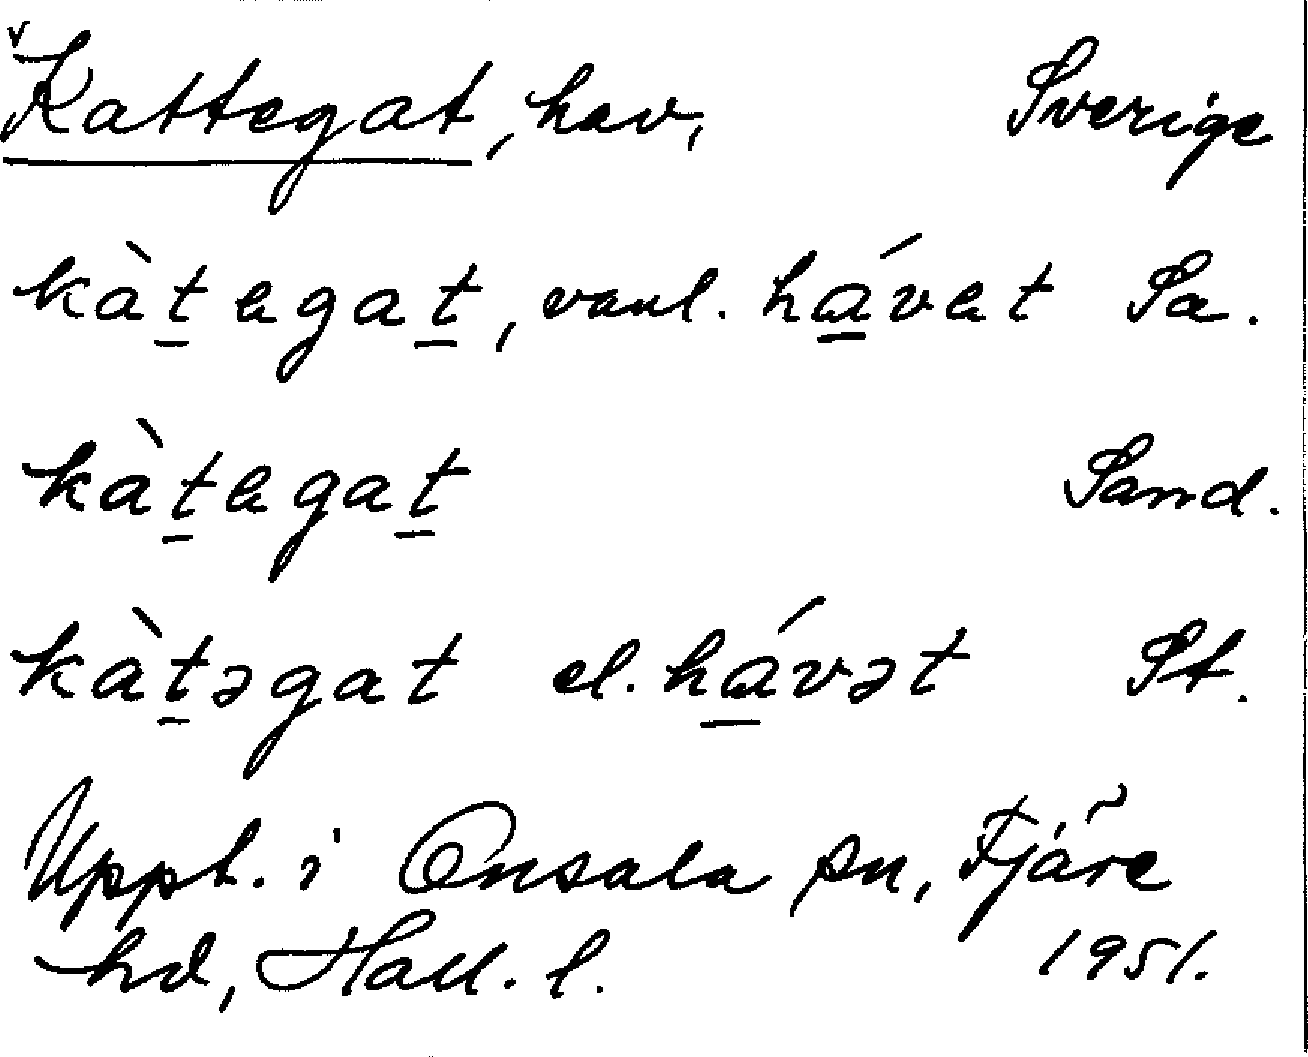 v
Kattegat, hav, Sverige
kàt̲ega̲t, vanl. há̲vet Sa.
kàt̲egat̲ Sand.
kàt̲əgat el. há̲vət St.
Uppt. i Onsala sn, Fjäre
hd, Hall. l. 1951.